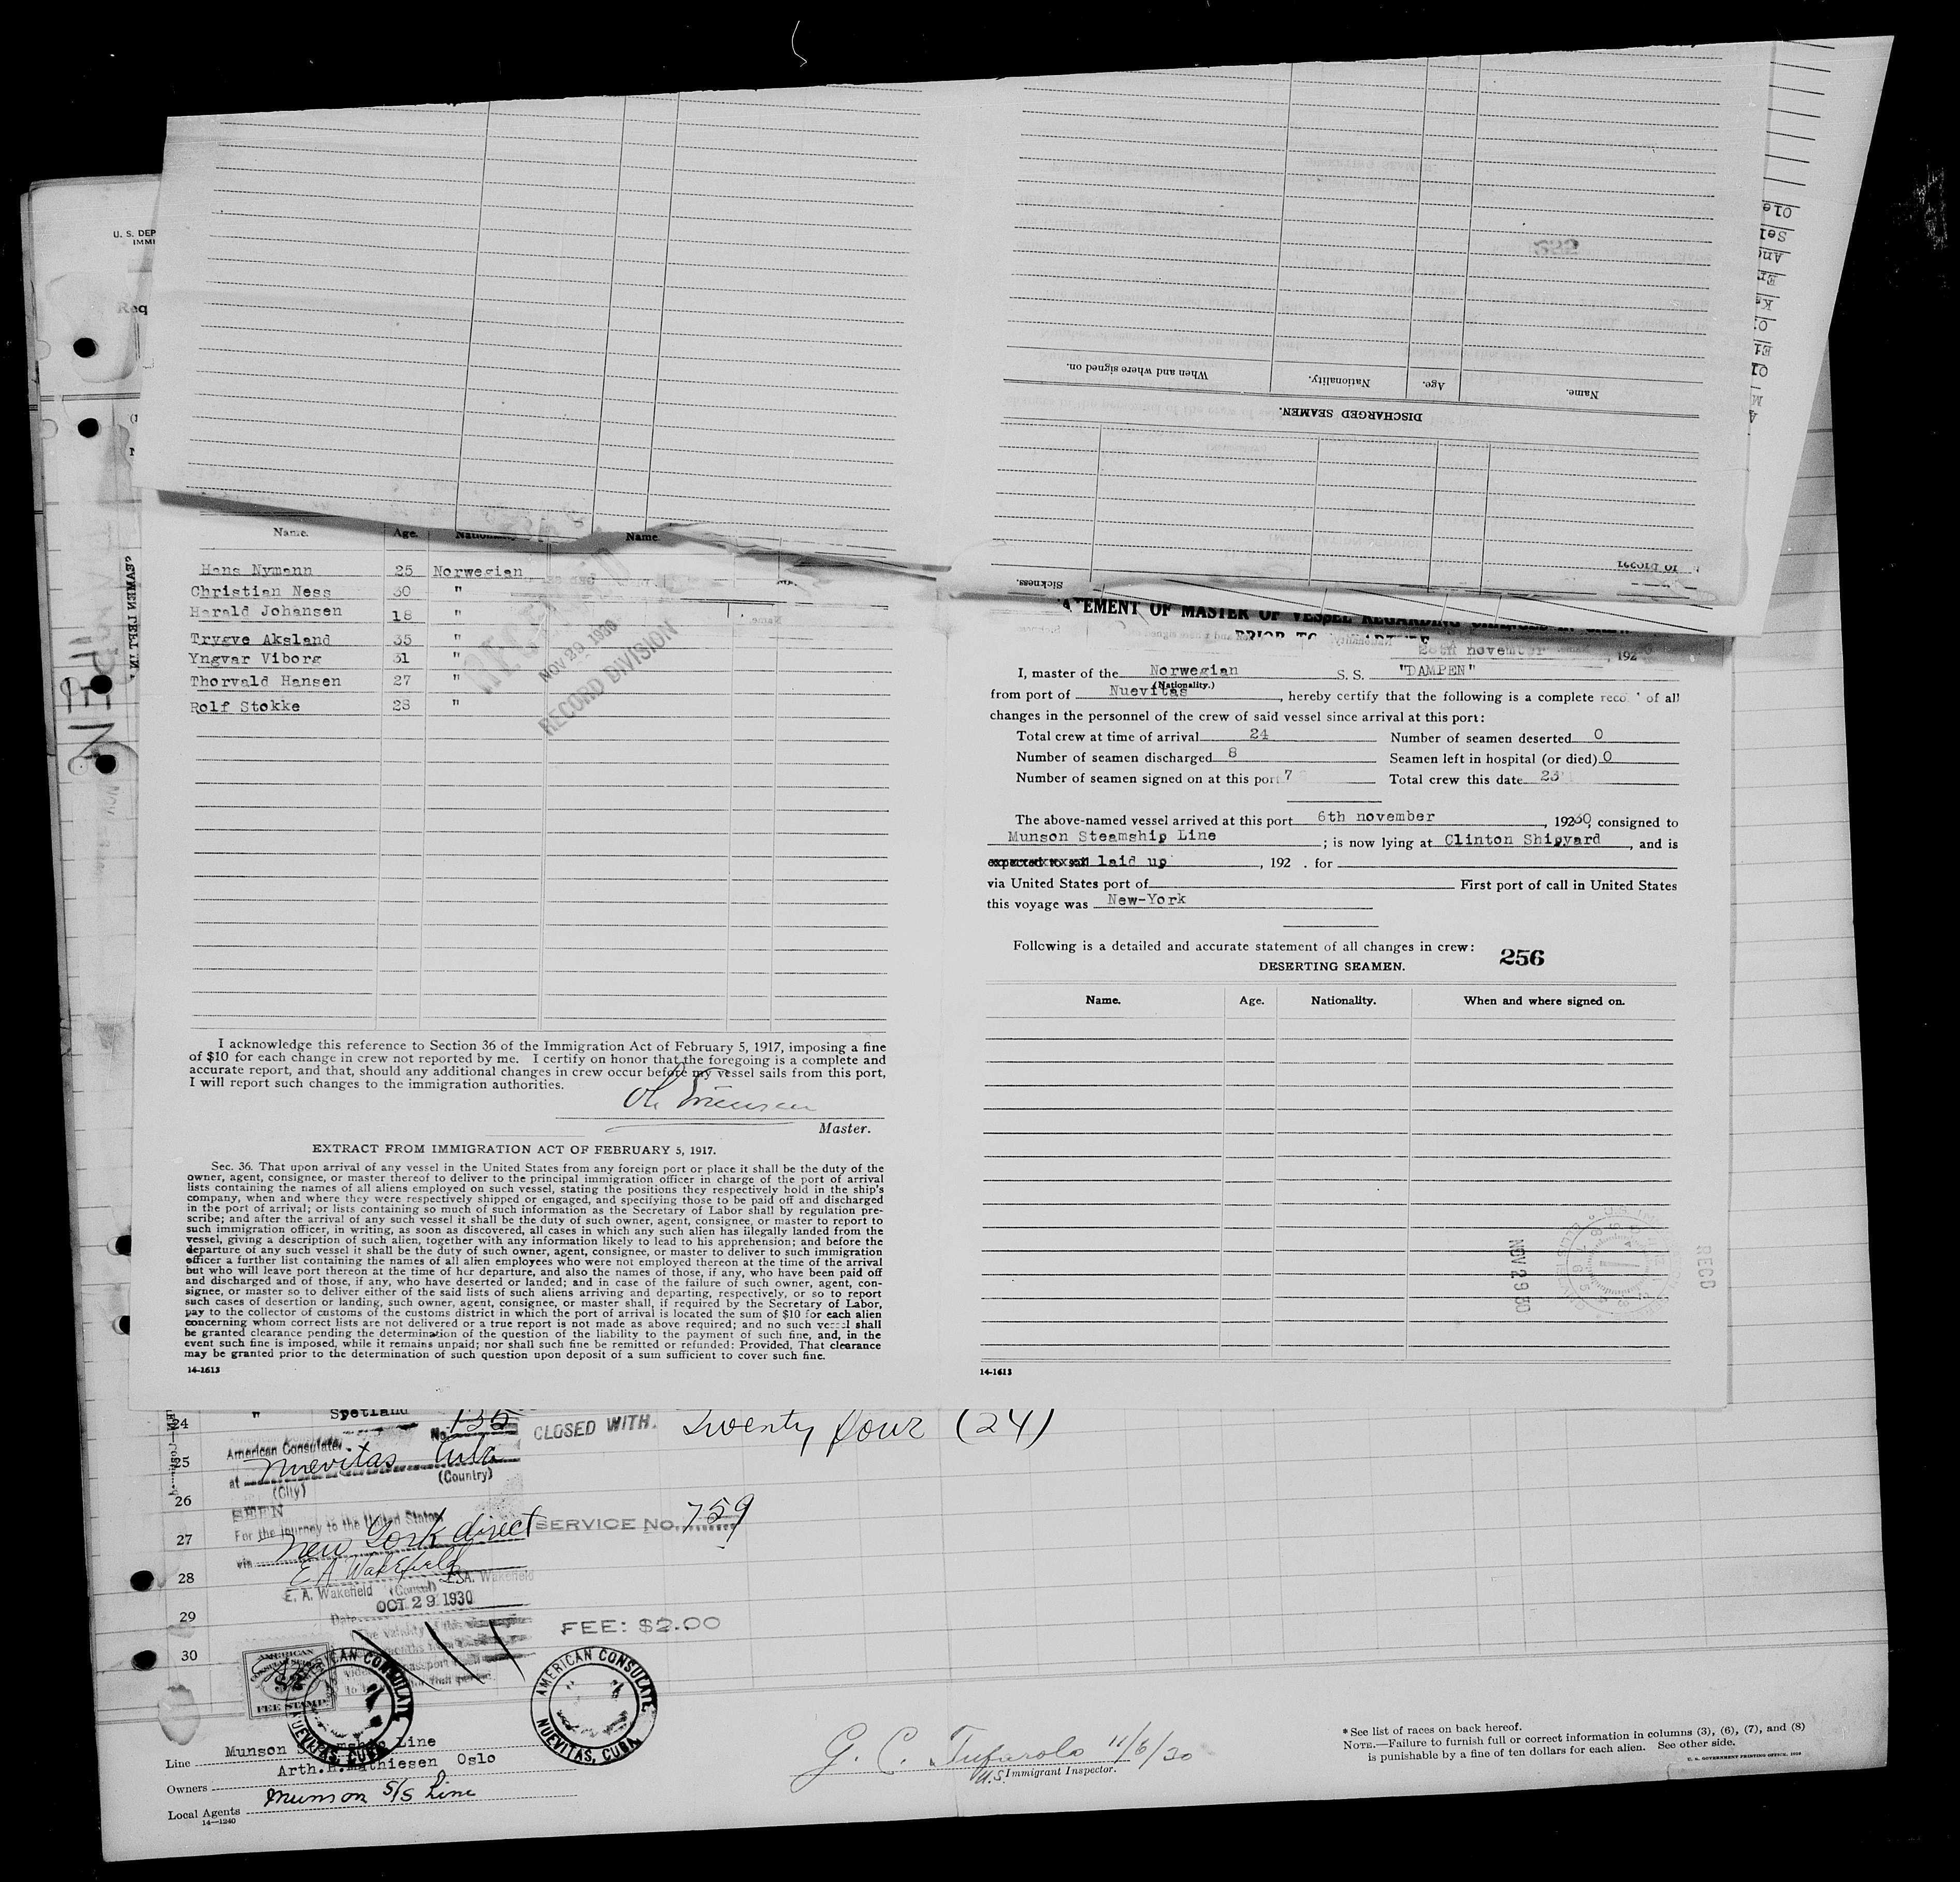 U. S. DEP
IMMI
Req
SEAMEN LEFT IN
When and where signed on.
Nationality.
Age.
Name.
DISCHARGED SEAMEN.
Sickness.
record of
Name.
Age.
Name
Hans Nymann 25 Norwegian
Christian Ness 30 "
Harald Johansen 18 "
Trygve Aksland 35 "
Yngvar Viborg 31 "
Thorvald Hansen 27 "
Rolf Stokke 28 "
NOV 29 1930
RECORD DIVISION
I acknowledge this reference to Section 36 of the Immigration Act of February 5, 1917, imposing a fine
of $10 for each change in crew not reported by me. I certify on honor that the foregoing is a complete and
accurate report, and that, should any additional changes in crew occur before my vessel sails from this port,
I will report such changes to the immigration authorities.
Master.
EXTRACT FROM IMMIGRATION ACT OF FEBRUARY 5, 1917.
Sec. 36. That upon arrival of any vessel in the United States from any foreign port or place it shall be the duty of the
owner, agent, consignee, or master thereof to deliver to the principal immigration officer in charge of the port of arrival
lists containing the names of all aliens employed on such vessel, stating the positions they respectively hold in the ship's
company, when and where they were respectively shipped or engaged, and specifying those to be paid off and discharged
in the port of arrival; or lists containing so much of such information as the Secretary of Labor shall by regulation pre-
scribe; and after the arrival of any such vessel it shall be the duty of such owner, agent, consignee, or master to report to
such immigration officer, in writing, as soon as discovered, all cases in which any such alien has illegally landed from the
vessel, giving a description of such alien, together with any information likely to lead to his apprehension; and before the
departure of any such vessel it shall be the duty of such owner, agent, consignee, or master to deliver to such immigration
officer a further list containing the names of all alien employees who were not employed thereon at the time of the arrival
but who will leave port thereon at the time of her departure, and also the names of those, if any, who have been paid off
and discharged and of those, if any, who have deserted or landed; and in case of the failure of such owner, agent, con-
signee, or master so to deliver either of the said lists of such aliens arriving and departing, respectively, or so to report
such cases of desertion or landing, such owner, agent, consignee, or master shall, if required by the Secretary of Labor,
pay to the collector of customs of the customs district in which the port of arrival is located the sum of $10 for each alien
concerning whom correct lists are not delivered or a true report is not made as above required; and no such vessel shall
be granted clearance pending the determination of the question of the liability to the payment of such fine, and, in the
event such fine is imposed, while it remains unpaid; nor shall such fine be remitted or refunded: Provided, That clearance
may be granted prior to the determination of such question upon deposit of a sum sufficient to cover such fine.
14-1613
ATEMENT OF MASTER OF VESSEL REGARDING CHANGES IN CREW
PRIOR TO
november , 192
I, master of the Norwegian S. S. "DAMPEN"
(Nationality.)
from port of Nuevitas , hereby certify that the following is a complete reco of all
changes in the personnel of the crew of said vessel since arrival at this port:
Total crew at time of arrival 24 Number of seamen deserted 0
Number of seamen discharged 8 Seamen left in hospital (or died) 0
Number of seamen signed on at this port 7 Total crew this date 23
The above-named vessel arrived at this port 6th november , 19230, consigned to
Munson Steamship Line ; is now lying at Clinton Shipyard , and is
expected to sail laid up , 192 . for
via United States port of First port of call in United States
this voyage was New-York
Following is a detailed and accurate statement of all changes in crew: 256
DESERTING SEAMEN.
Name. Age. Nationality. When and where signed on.
NOV 29 30
RECD
14-1613
24 " Spetland
No. 135 CLOSED WITH. Twenty four (24)
American Consulate
25
at Nuevitas Cuba
(City) (Country)
26
SEEN
For the journey to the United States
27
via New York direct SERVICE No. 759
E A Wakefield
28
E. A. Wakefield (Consul)
OCT 29 1930
29
Date
FEE: $2.00
30
AMERICAN
FEE STAMP
AMERICAN CONSULATE
NUEVITAS, CUBA
AMERICAN CONSULATE
NUEVITAS, CUBA
Line Munson Steamship Line
Owners Arth.H.Mathiesen Oslo
Local Agents Munson S/S Line
14—1240
G. C. 11/6/30
U.S. Immigrant Inspector.
* See list of races on back hereof.
NOTE.—Failure to furnish full or correct information in columns (3), (6), (7), and (8)
is punishable by a fine of ten dollars for each alien. See other side.
U. S. GOVERNMENT PRINTING OFFICE